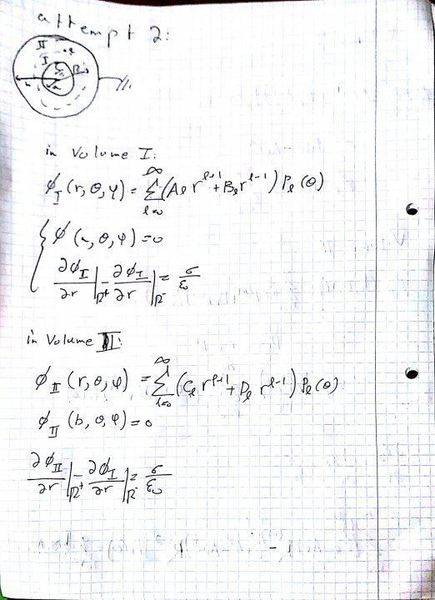 attempt 2:
II
I
R
a
in Volume I:
ϕ_I (r,θ,φ) = ∑_{l=0}^∞ (A_l r^{l+1} + B_l r^{l-1}) P_l(θ)
{ ϕ (a,θ,φ) = 0
∂ϕ_I/∂r |_{R^+} - ∂ϕ_I/∂r |_{R^-} = σ/ε_0
in Volume II:
ϕ_II (r,θ,φ) = ∑_{l=0}^∞ (C_l r^{l+1} + D_l r^{l-1}) P_l(θ)
ϕ_II (b,θ,φ) = 0
∂ϕ_II/∂r |_{R^+} - ∂ϕ_I/∂r |_{R^-} = σ/ε_0